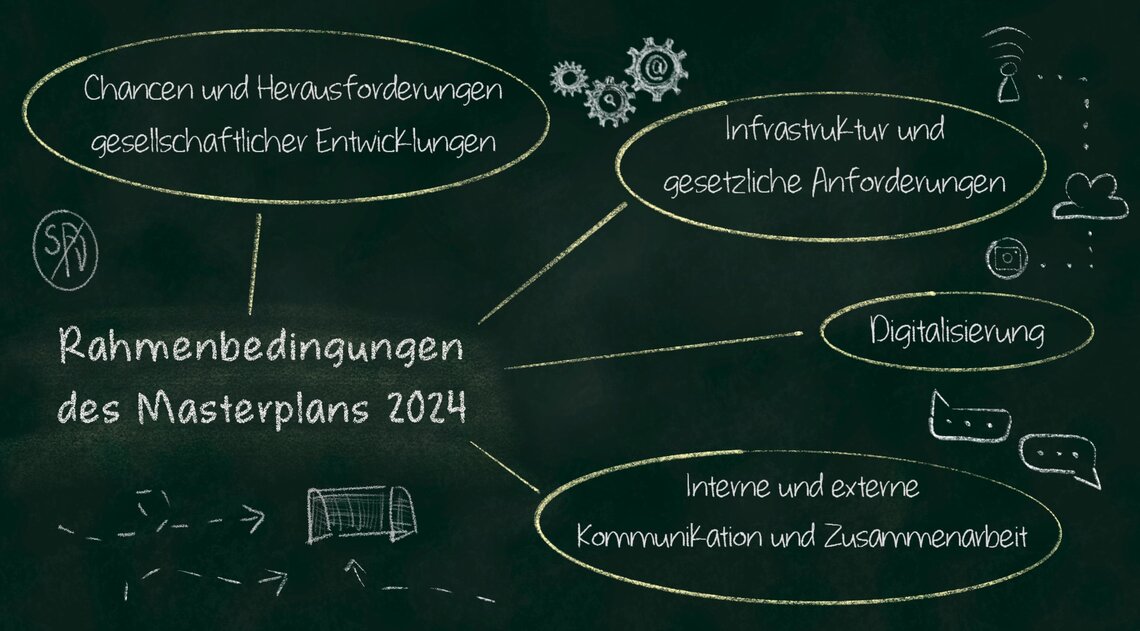 Chancen und Herausforderungen
gesellschaftlicher Entwicklungen
@
Infrastruktur und
gesetzliche Anforderungen
Rahmenbedingungen
des Masterplans 2024
Digitalisierung
Interne und externe
Kommunikation und Zusammenarbeit